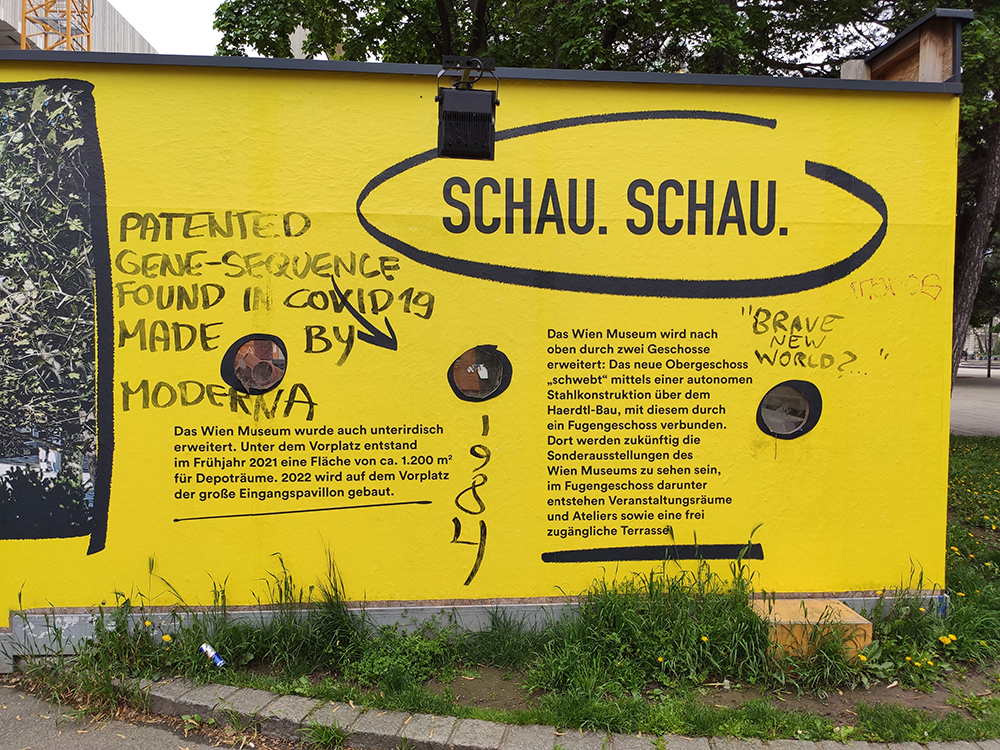 SCHAU. SCHAU.
PATENTED
GENE-SEQUENCE
FOUND IN COVID19
MADE BY
MODERNA
Das Wien Museum wurde auch unterirdisch
erweitert. Unter dem Vorplatz entstand
im Frühjahr 2021 eine Fläche von ca. 1.200 m²
für Depoträume. 2022 wird auf dem Vorplatz
der große Eingangspavillon gebaut.
1984
Das Wien Museum wird nach
oben durch zwei Geschosse
erweitert: Das neue Obergeschoss
„schwebt“ mittels einer autonomen
Stahlkonstruktion über dem
Haerdtl-Bau, mit diesem durch
ein Fugengeschoss verbunden.
Dort werden zukünftig die
Sonderausstellungen des
Wien Museums zu sehen sein,
im Fugengeschoss darunter
entstehen Veranstaltungsräume
und Ateliers sowie eine frei
zugängliche Terrasse
"BRAVE
NEW
WORLD?..."